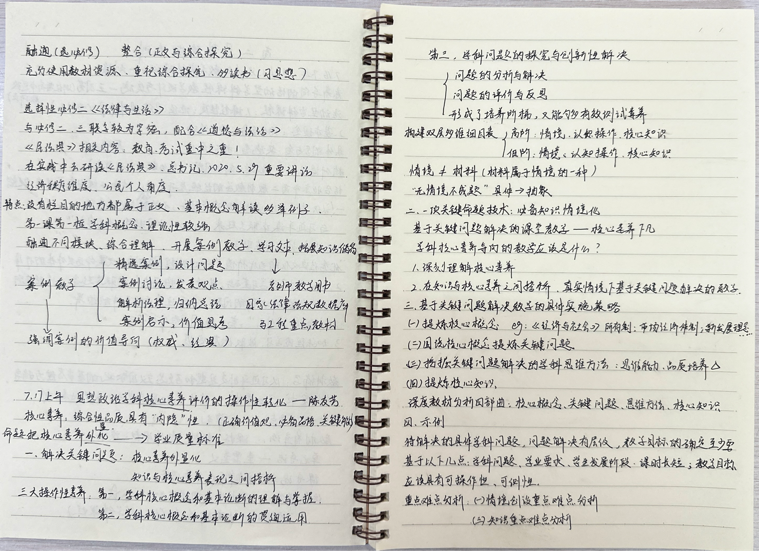 融通(选必修) 整合(正文与综合探究)
充分使用教材资源、重视综合探究、多读书(习思想)
选择性必修二《法律与生活》
与必修二、三联系较为紧密,配合《道德与法治》
《民法典》相关内容,教育、考试重中之重!
在实践中去研读《民法典》,总书记,2020.5.29 重要讲话
法律程序维度、公民个人角度.
特点:没有栏目的地方都属于正文、基本概念解读多举例子.
第一课第一框学科概念、理论性较强
融通不同模块、综合理解 开展案例教学、学习文本、拓展知识储备
精选案例,设计问题
案例教学 案例讨论,发表观点. 多创作教学用书
解析法理,归纳总结 国家法律法规数据库
案例启示,价值思考 引之重点教材
强调案例的价值导向(权威、经典)
7.17上午 思想政治学科核心素养评价的操作性转化——陈友芳
核心素养:综合性品质具有"内隐"性 (正确价值观,必备品格、关键能力)
命题把核心素养外显化 → 学业质量标准
一、解决关键问题:核心素养外显化
知识与核心素养表现之间搭桥
三大操作性素养:第一,学科核心概念和基本论断的理解与掌握.
第二,学科核心概念和基本论断的灵活运用
第三,学科问题的探究与创新性解决
问题的分析与解决
问题的评价与反思
形成了培养阶梯,又能够有效测试素养
构建双层多维细目表 高阶:情境、认知操作、核心知识
低阶:情境、认知操作、核心知识
情境 ≠ 材料(材料属于情境的一种)
"无情境不成题" 具体→抽象
二、一项关键命题技术:必备知识情境化
基于关键问题解决的课堂教学——核心素养下凡
学科核心素养导向的教学应该是什么?
1.深刻理解核心素养
2.在知识与核心素养之间搭桥,真实情境下基于关键问题解决的教学.
三、基于关键问题解决教学的具体实施策略
(一)提炼核心概念 eg:《经济与社会》所有制;市场经济体制;新发展理念
(二)围绕核心概念提炼关键问题.
(三)把握关键问题解决的学科思维方法:思维能力、品质培养△
(四)提炼核心知识.
深度教材分析四部曲:核心概念、关键问题、思维方法、核心知识
四、示例
待解决的具体学科问题,问题解决有层次,教学目标的确定至少要
基于以下几点:学科问题、学业要求、学生发展阶段、课时长短;教学目标
应该具有可操作性、可测性.
重点难点分析:(一)情境创设重点难点分析
(二)知识重点难点分析